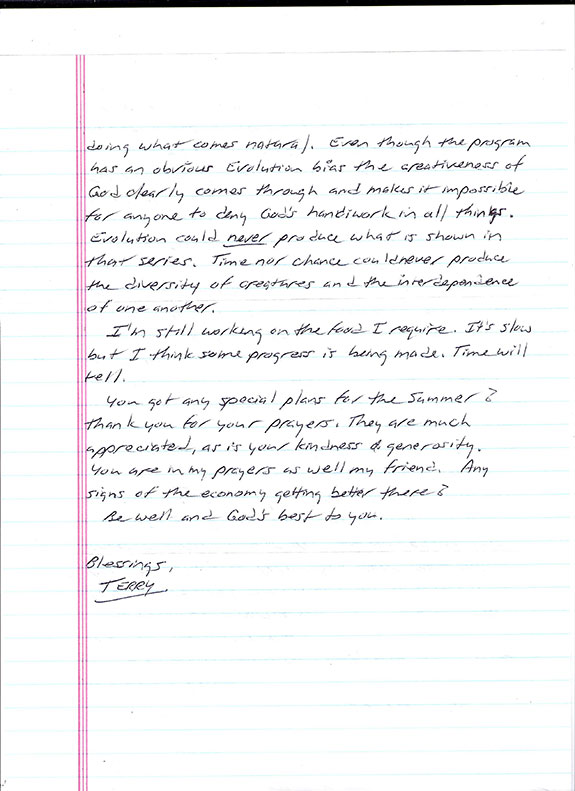 doing what comes natural. Even though the program
has an obvious Evolution bias the creativeness of
God clearly comes through and makes it impossible
for anyone to deny God's handiwork in all things.
Evolution could never produce what is shown in
that series. Time nor chance could never produce
the diversity of creatures and the interdependence
of one another.
I'm still working on the food I require. It's slow
but I think some progress is being made. Time will
tell.
You got any special plans for the Summer?
Thank you for your prayers. They are much
appreciated, as is your kindness & generosity.
You are in my prayers as well my friend. Any
signs of the economy getting better there?
Be well and God's best to you.
Blessings,
TERRY